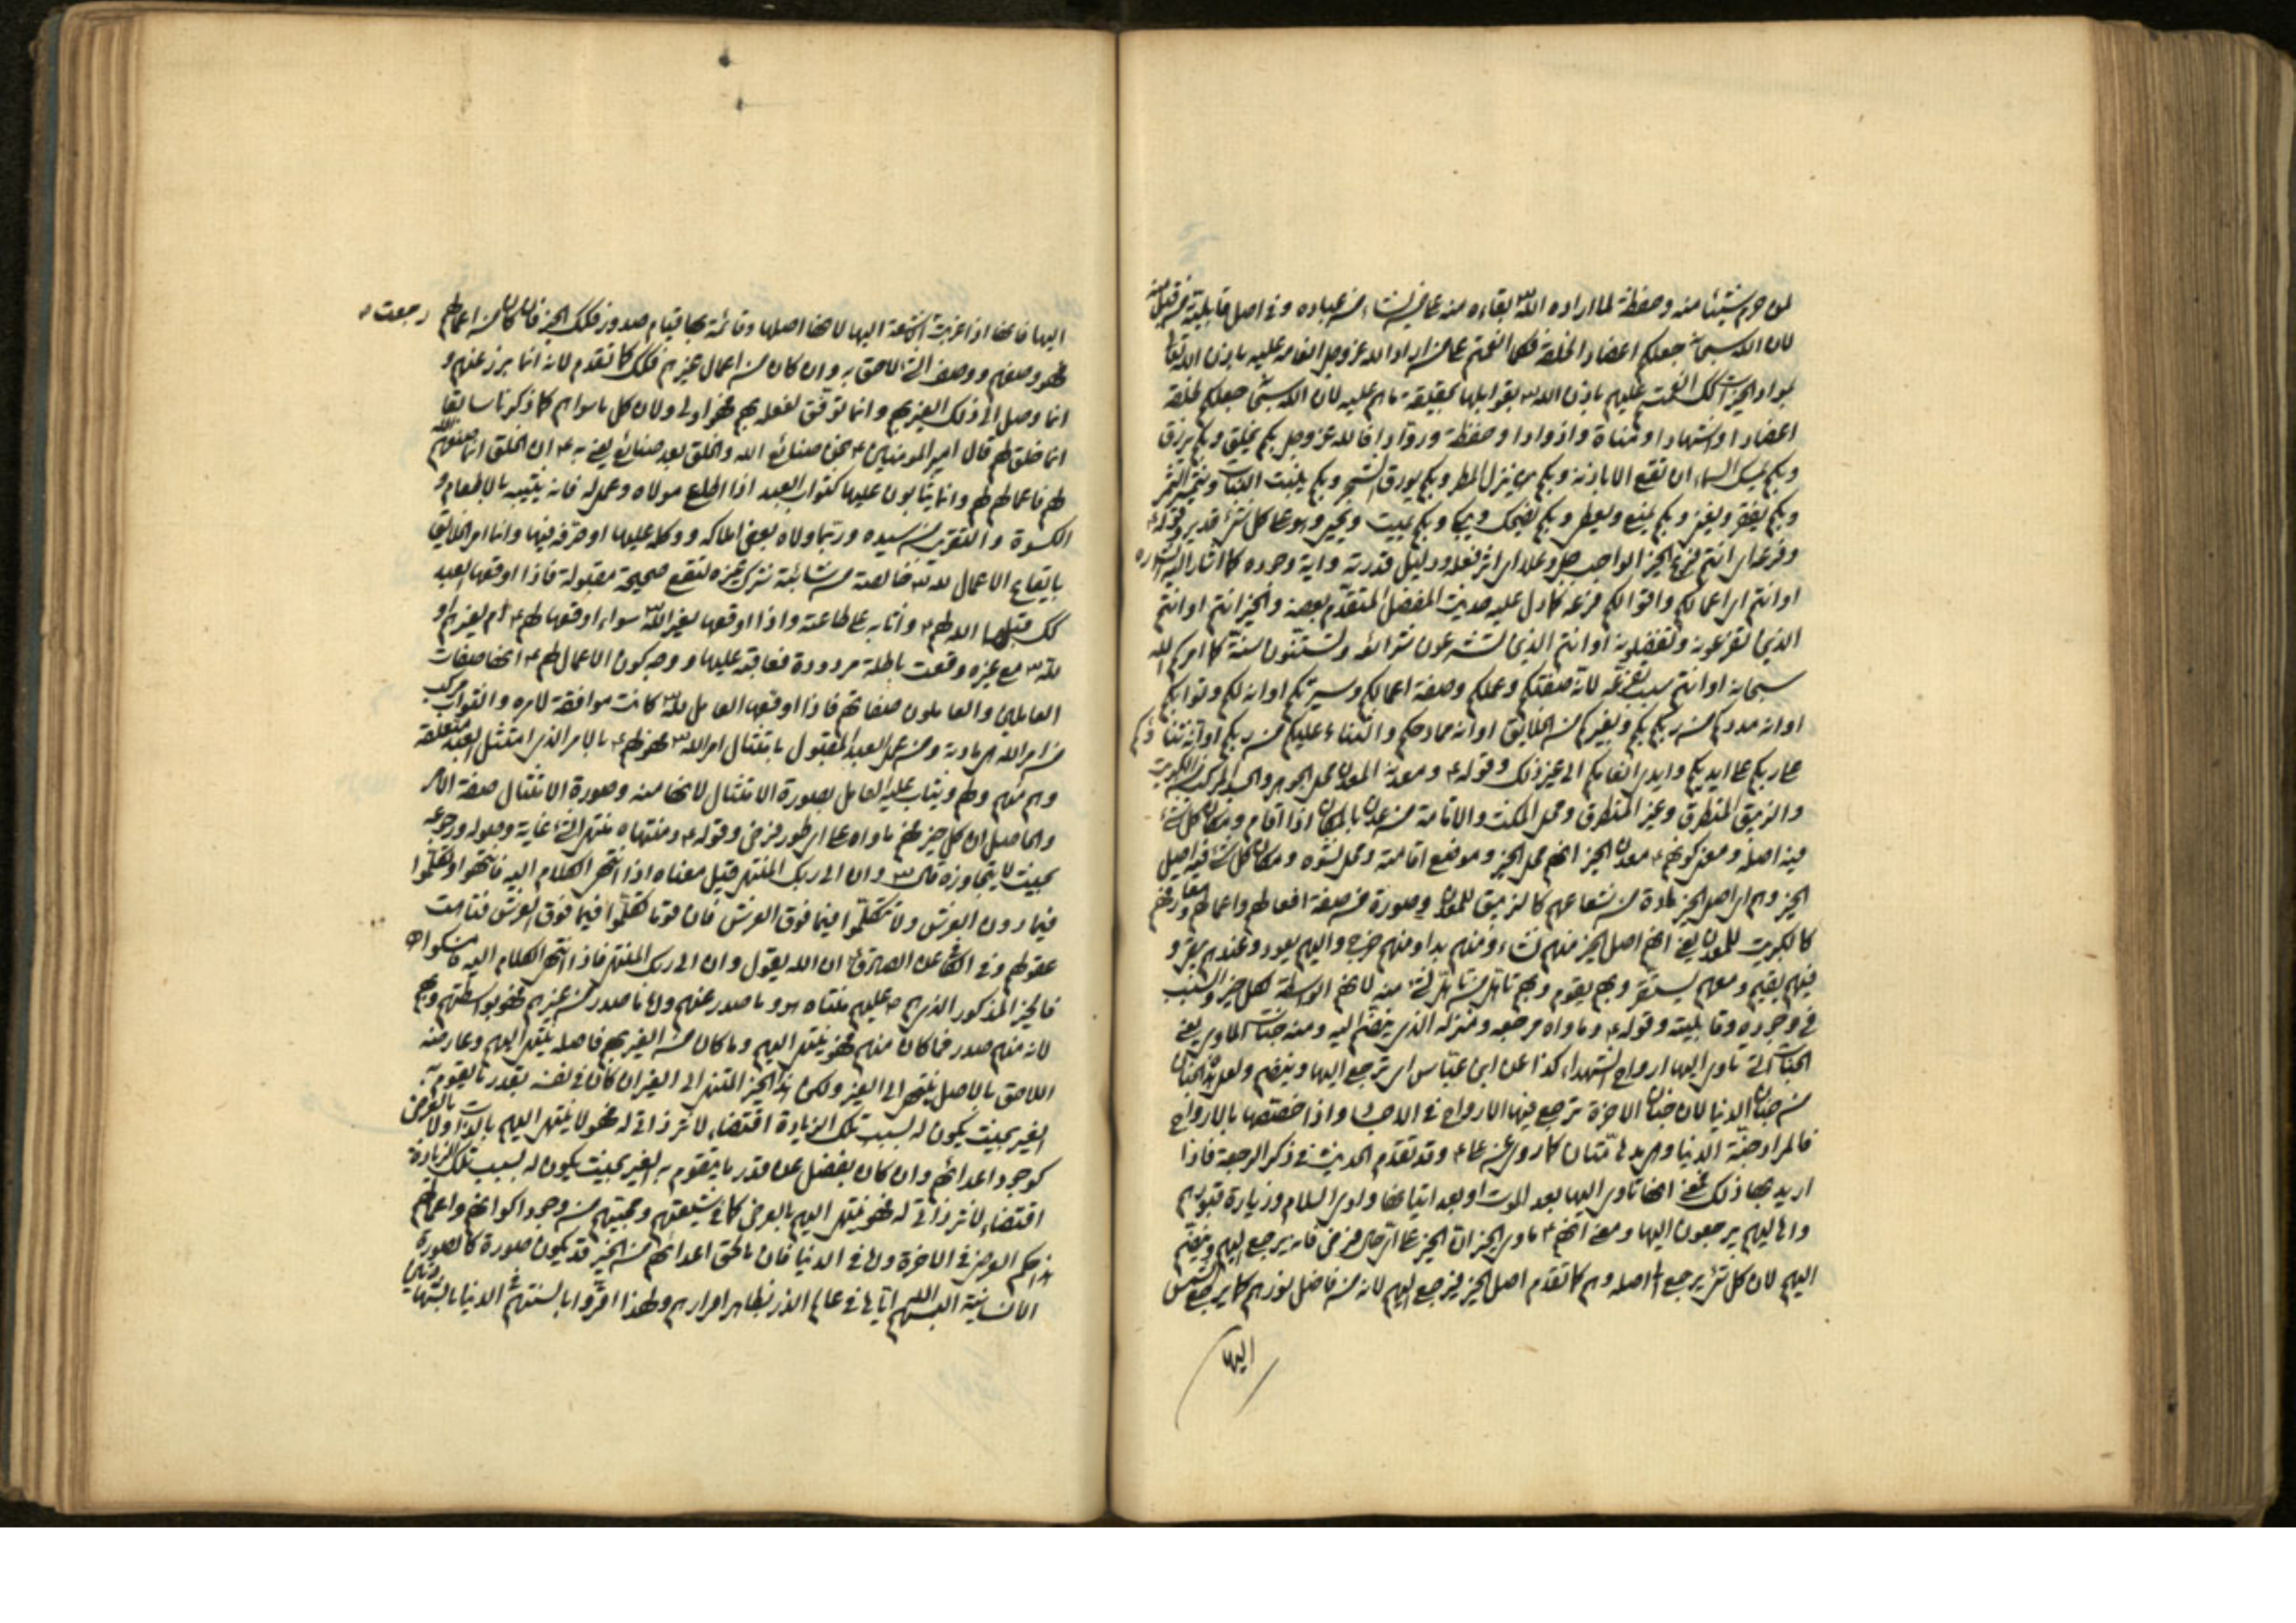 لمن حرم شيئا منه وحفظة لما اراده الله بقاءه منه على من يشاء من عباده وفي اصل قابليته من قبل منه
لان الله سبحانه جعلكم اعضاد الخلقه فكلما انعمتم على من اراد الله عز وجل انعامه عليه باذن الله تعالى
بمواد الخيرات انعمت عليهم باذن الله بقوابلها بحقيقة ما هم عليه لان الله سبحانه جعلكم لخلقه
اعضادا واشهادا ومناة واذوادا وحفظة وروادا فالله عز وجل بكم يخلق وبكم يرزق
وبكم يمسك السماء ان تقع الا باذنه وبكم ينزل المطر وبكم يورق الشجر وبكم ينبت النبات ويثمر الثمر
وبكم يفقر ويغني وبكم يمنع ويعطي وبكم يضحك ويبكي وبكم يميت ويحيي وهو على كل شيء قدير وقوله
وفرعه اي انتم فرع الخير الواجب جل وعلا اي اثر فعله ودليل قدرته واية وحده كما اشار اليه
او انتم اي اعمالكم واقوالكم فرعه كما دل عليه حديث المفضل المتقدم بعضه والخير انتم او انتم
الذين تفرعونه وتفضلونه او انتم الذين تشرعون شرائعه وتسننون سننه كما امركم الله
سبحانه او انتم سبب تفرعه لانه صفتكم وعملكم وصفة اعمالكم وسيرتكم او انه لكم وثوابكم
او انه مددكم من ربكم بكم وبغيركم من الخلايق او انه ممادحكم والثناء عليكم من ربكم او انه ثناؤكم
على ربكم على ايديكم وايدي اتقائكم الى غير ذلك وقوله ومعدنه المعدن محل الجوهر والجسد المركب من الكبريت
والزيبق المنطرق وغير المنطرق ومحل المكث والاقامة من عدن بالمكان اذا اقام ومكان كل شيء
فيه اصله ومعنى كونهم معدن الخير انهم محل الخير وموضع اقامته ومحل نشوه ومكان كل شيء فيه اصيل
الخير وهم اي اصل الخير مادة من شعاعهم كالزيبق للمعدن وصورة من صفة افعالهم واعمالهم ومعارفهم
كالكبريت للمعدن يعني انهم اصل الخير منهم نشاء ومنهم بدا ومنهم خرج واليهم يعود وعندهم يقر و
فيهم يقيم ومعهم يستقر وبهم يقوم وبهم تاهل من تاهل لشيء منه لانهم الواسطة لكل خير والسبب
في وجوده وقابليته وقوله وماواه مرجعه ومنزله الذي ينضم اليه ومنه جنات الماوى يعني
الجنات التي تاوي اليها ارواح الشهداء كذا عن ابن عباس اي ترجع اليها وينضم ولعل هذه الجنان
من جنان الدنيا لان جنان الاخرة ترجع فيها الارواح في الاجساد واذا خصتها بالارواح
فالمراد جنة الدنيا وهي مدهامتان كما روي عنه وقد تقدم الحديث في ذكر الرجعة فاذا
اريد بها ذلك فمعنى انها تاوي اليها بعد الموت او بعد اتيانها وادي السلام وزيارة قبورهم
واهاليهم يرجعون اليها ومعنى انهم ماوى الخير ان الخير على اي حال فرض فانه يرجع اليهم وينضم
اليهم لان كل شيء يرجع الى اصله وهم كما تقدم اصل الخير فيرجع اليهم لانه من فاضل نورهم كما يرجع شعاع الشمس
اليها
اليها فانها اذا غربت رجعت الاشعة اليها لانها اصلها وقائمة بها قيام صدور فكذلك الخير فان كان من اعمالهم
فهو وصفهم ووصف الشيء لاحق به وان كان من اعمال غيرهم فكذلك كما تقدم لانه انما برز عنهم و
انما وصل الى ذلك الغير بهم وانما توفق لفعله بهم فهو اولى ولان كل ما سواهم كما ذكرنا سابقا
انما خلق لهم قال امير المومنين نحن صنائع الله والخلق بعد صنائع لنا يعني به ان الخلق انما صنعهم الله
لهم فاعمالهم لهم وانما يثابون عليها كثواب العبد اذا اطاع مولاه وعمل له فانه يثيبه بالاطعام و
الكسوة والتقرب من سيده وربما ولاه بعض املاكه ووكله عليها او صرفه فيها وانما امر الخلايق
بايقاع الاعمال لله خالصة من شائبة شرك غيره لتقع صحيحة مقبولة فاذا اوقعها العبد
كذلك قبلها الله لهم واثابه على طاعته واذا اوقعها لغير الله سواء اوقعها لهم ام لغيرهم او
لله مع غيره وقعت باطلة مردودة فعاقبه عليها ووجه كون الاعمال لهم انها صفات
العاملين والعاملون صفاتهم فاذا اوقعها العامل لله كانت موافقة لامره والثواب مركب
من امر الله اي مادته ومن عمل العبد المقبول بامتثال امر الله فهو لهم بالامر الذي امتثل العبد متعلقه
وهم منهم ولهم ويثاب عليه العامل بصورة الامتثال لانها منه وصورة الامتثال صفة الامر
والحاصل ان كل خير فهم ماواه على اي طور فرض وقوله ومنتهاه منتهى الشيء غاية وصوله ورجوعه
بحيث لا يتجاوزه قال وان الى ربك المنتهى قيل معناه اذا انتهى الكلام اليه فانتهوا وتكلموا
فيما دون العرش ولا تكلموا فيما فوق العرش فان قوما تكلموا فيما فوق العرش فتاهت
عقولهم وفي الكافي عن الصادق ان الله يقول وان الى ربك المنتهى فاذا انتهى الكلام اليه فامسكوا
فالخير المذكور الذي هم عليهم منتهاه هو ما صدر عنهم واما ما صدر من غيرهم فهو بواسطتهم وبهم
لانه منهم صدر فما كان منهم فهو ينتهي اليهم وما كان من الغير بهم فاصله ينتهي اليهم وعارضه
اللاحق بالاصل ينتهي الى الغير ولكن هذا الخير المنتهي الى الغير ان كان في نفسه بقدر ما يقوم به
الغير بحيث يكون له بسبب تلك الزيادة اقتضاء لاثر ذاتي له فهو لا ينتهي اليهم بالذات اولا بالعرض
كوجود اعدائهم وان كان يفضل عن قدر ما يتقوم به الغير بحيث يكون له بسبب تلك الزيادة
اقتضاء لاثر ذاتي له فهو ينتهي اليهم بالعرض كما في شيعتهم ومحبيهم من وجود اكوانهم واعمالهم
هذا حكم العرض في الاخرة واما في الدنيا فان ما لحق اعدائهم من الخير قد يكون صورة كالصورة
الانسانية البسهم الله اياها في عالم الذر بظاهر اقرارهم ولهذا اقروا بالسنتهم في الدنيا بالشهادتين